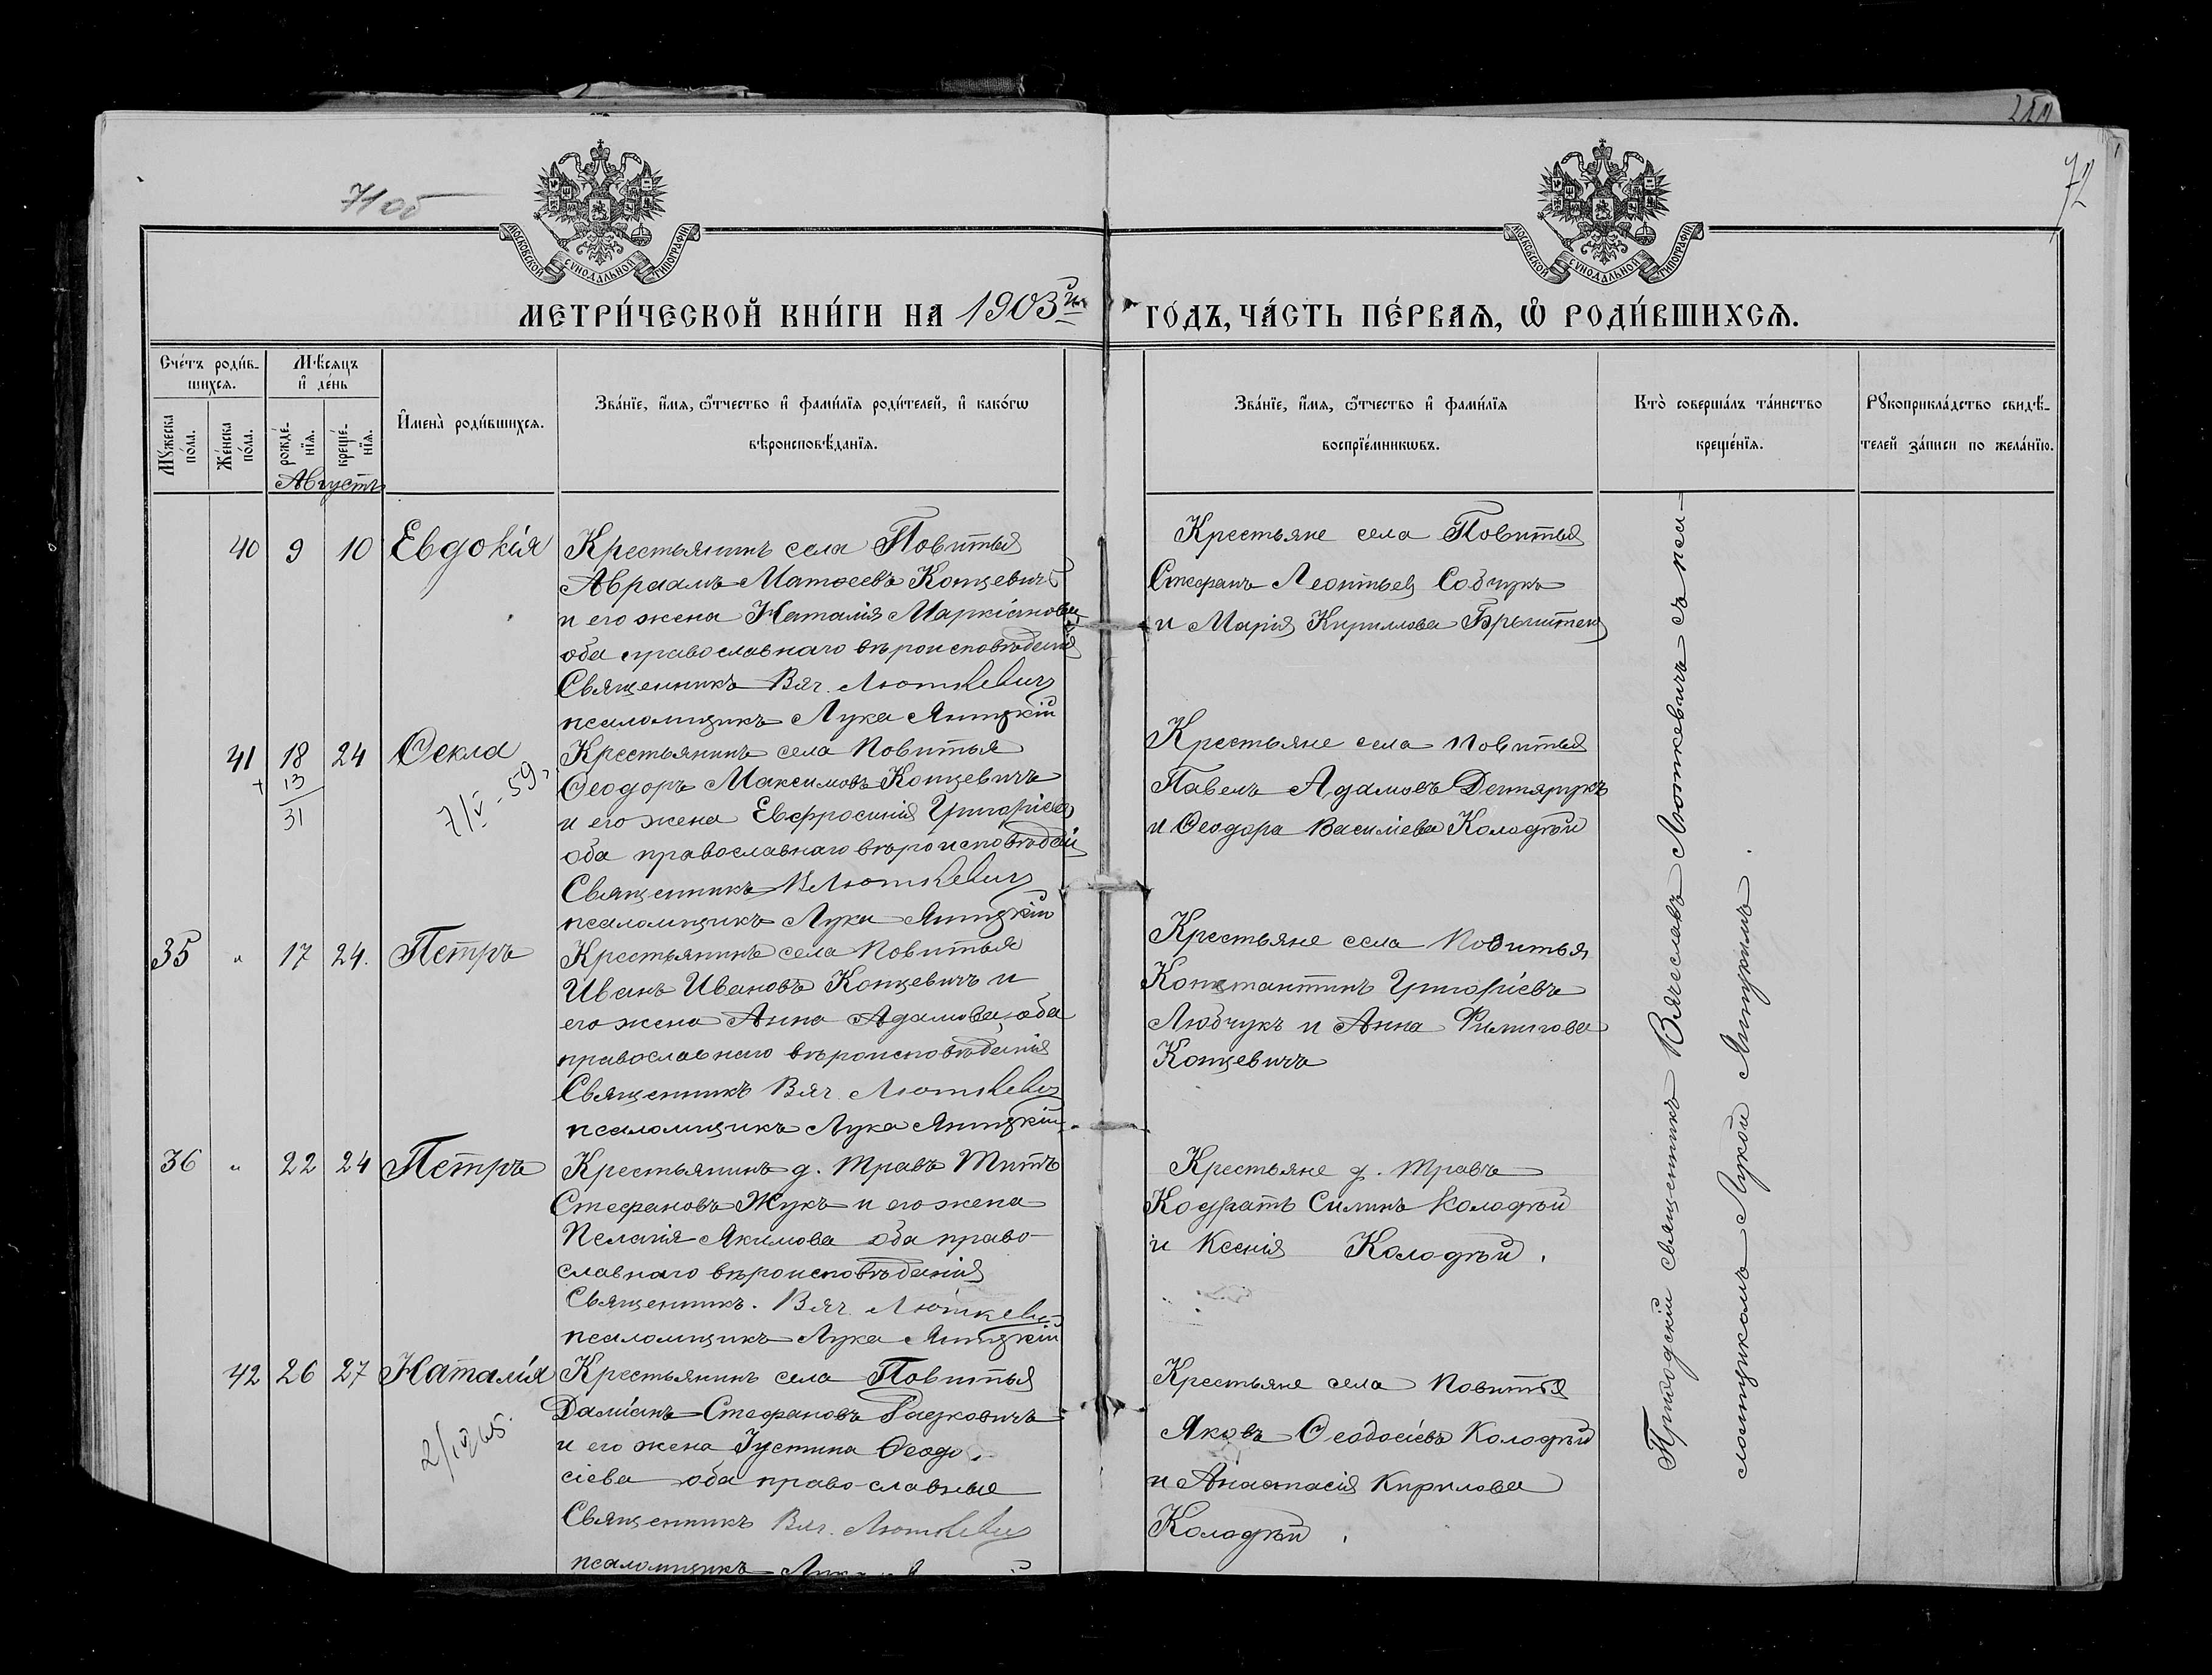 252
71об
72
МОСКОВСКОЙ СУНОДАЛЬНОЙ ТИПОГРАФІИ
МОСКОВСКОЙ СУНОДАЛЬНОЙ ТИПОГРАФІИ
МЕТРИ́ЧЕСКОЙ КНИ́ГИ НА 1903й ГО́ДЪ, ЧА́СТЬ ПЕ́РВАѦ, Ѡ РОДИ́ВШИХСѦ.
Сче́тъ роди́в-
шихсѧ.
Мѣ́сѧцъ
и҆ де́нь
Мꙋ́жеска по́ла.
Же́нска по́ла.
рожде́-нїѧ.
креще́-нїѧ.
И҆мена̀ роди́вшихсѧ.
Зва́нїе, и҆́мѧ, ѻ҆́тчество и҆ фами́лїѧ роди́телей, и҆ како́гѡ
вѣроисповѣ́данїѧ.
Зва́нїе, и҆́мѧ, ѻ҆́тчество и҆ фами́лїѧ
воспрїе́мникѡвъ.
Кто̀ соверша́лъ та́инство
креще́нїѧ.
Рꙋкоприкла́дство свидѣ́-
телей за́писи по жела́нїю.
Августъ
40 9 10 Евдокія
Крестьянинъ села Повитья
Авраамъ Матѳеевъ Концевичъ
и его жена Наталія Маркіанова
оба православнаго вѣроисповѣданія
Священникъ Вяч. Люткевич
псаломщикъ Лука Яницкій
Крестьяне села Повитья
Стефанъ Леонтьев Собчукъ
и Марія Кириллова
41 18 24 Ѳекла
+ 13
31
7/V - 59
Крестьянинъ села Повитья
Ѳеодоръ Максимовъ Концевичъ
и его жена Евфросинія Григоріева
оба православнаго вѣроисповѣданій
Священникъ В Люткевич
псаломщикъ Лука Яницкій
Крестьяне села Повитья
Павелъ Адамовъ Дегтярукъ
и Ѳеодора Василіева Колодѣй
35 " 17 24. Петръ
Крестьянинъ села Повитья
Иванъ Ивановъ Концевичъ и
его жена Анна Адамова, оба
православнаго вѣроисповѣданія
Священникъ Вяч. Люткевич
псаломщикъ Лука Яницкій
Крестьяне села Повитья
Константинъ Григоріевъ
Любчукъ и Анна Филипова
Концевичъ
36 " 22 24 Петръ
Крестьянинъ д. Травъ Титъ
Стефановъ Жукъ и его жена
Пелагія Якимова оба право-
славнаго вѣроисповѣданія
Священникъ. Вяч. Люткевич
псаломщикъ Лука Яницкій
Крестьяне д. Травъ
Кодратъ Силинъ Колодѣй
и Ксенія Колодѣй.
42 26 27 Наталія
2/IV 65
Крестьянинъ села Повитья
Даміанъ Стефановъ Радковичъ
и его жена Іустина Ѳеодо
сіева оба православные
Священникъ Вяч. Люткевич
псаломщикъ Лука
Крестьяне села Повитья
Яковъ Ѳеодосіевъ Колодѣй
и Анастасія Кирилова
Колодѣй.
Приходскій священникъ Вячеславъ Люткевичъ съ пса-
ломщикомъ Лукой Яницкимъ.